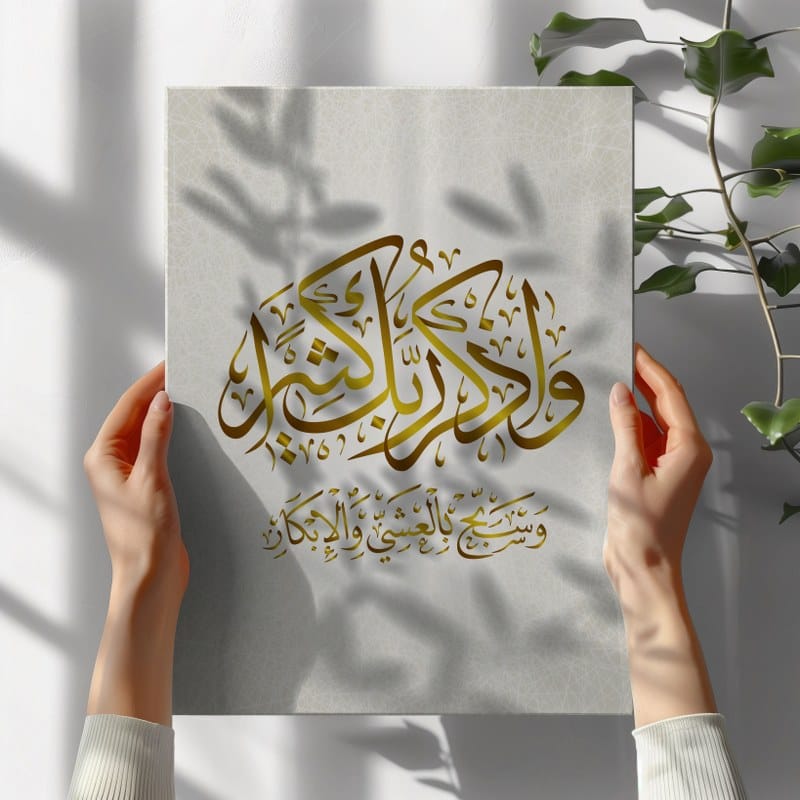 وَاذْكُر رَّبَّكَ كَثِيرًا
وَسَبِّحْ بِالْعَشِيِّ وَالْإِبْكَارِ